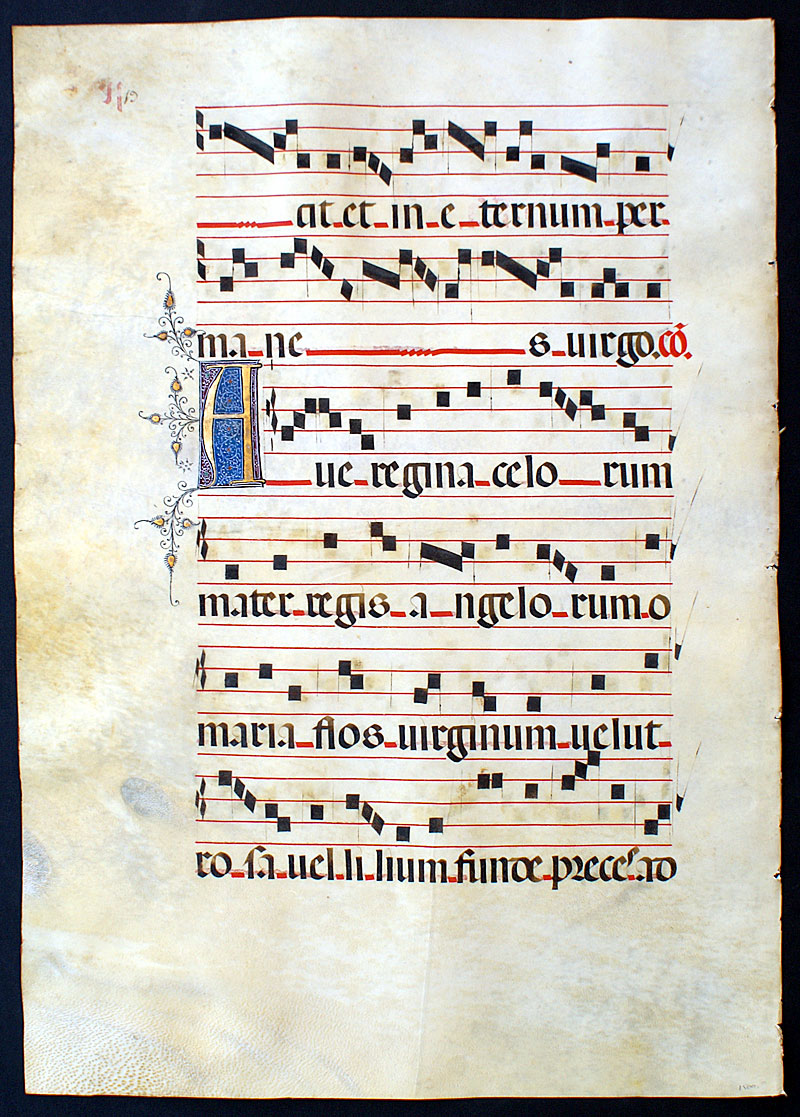 cit et in eternum per
manes virgo. cō.
Aue regina celorum
mater regis angelorum o
maria flos uirginum uelut
rosa uel lilium funde preces ad